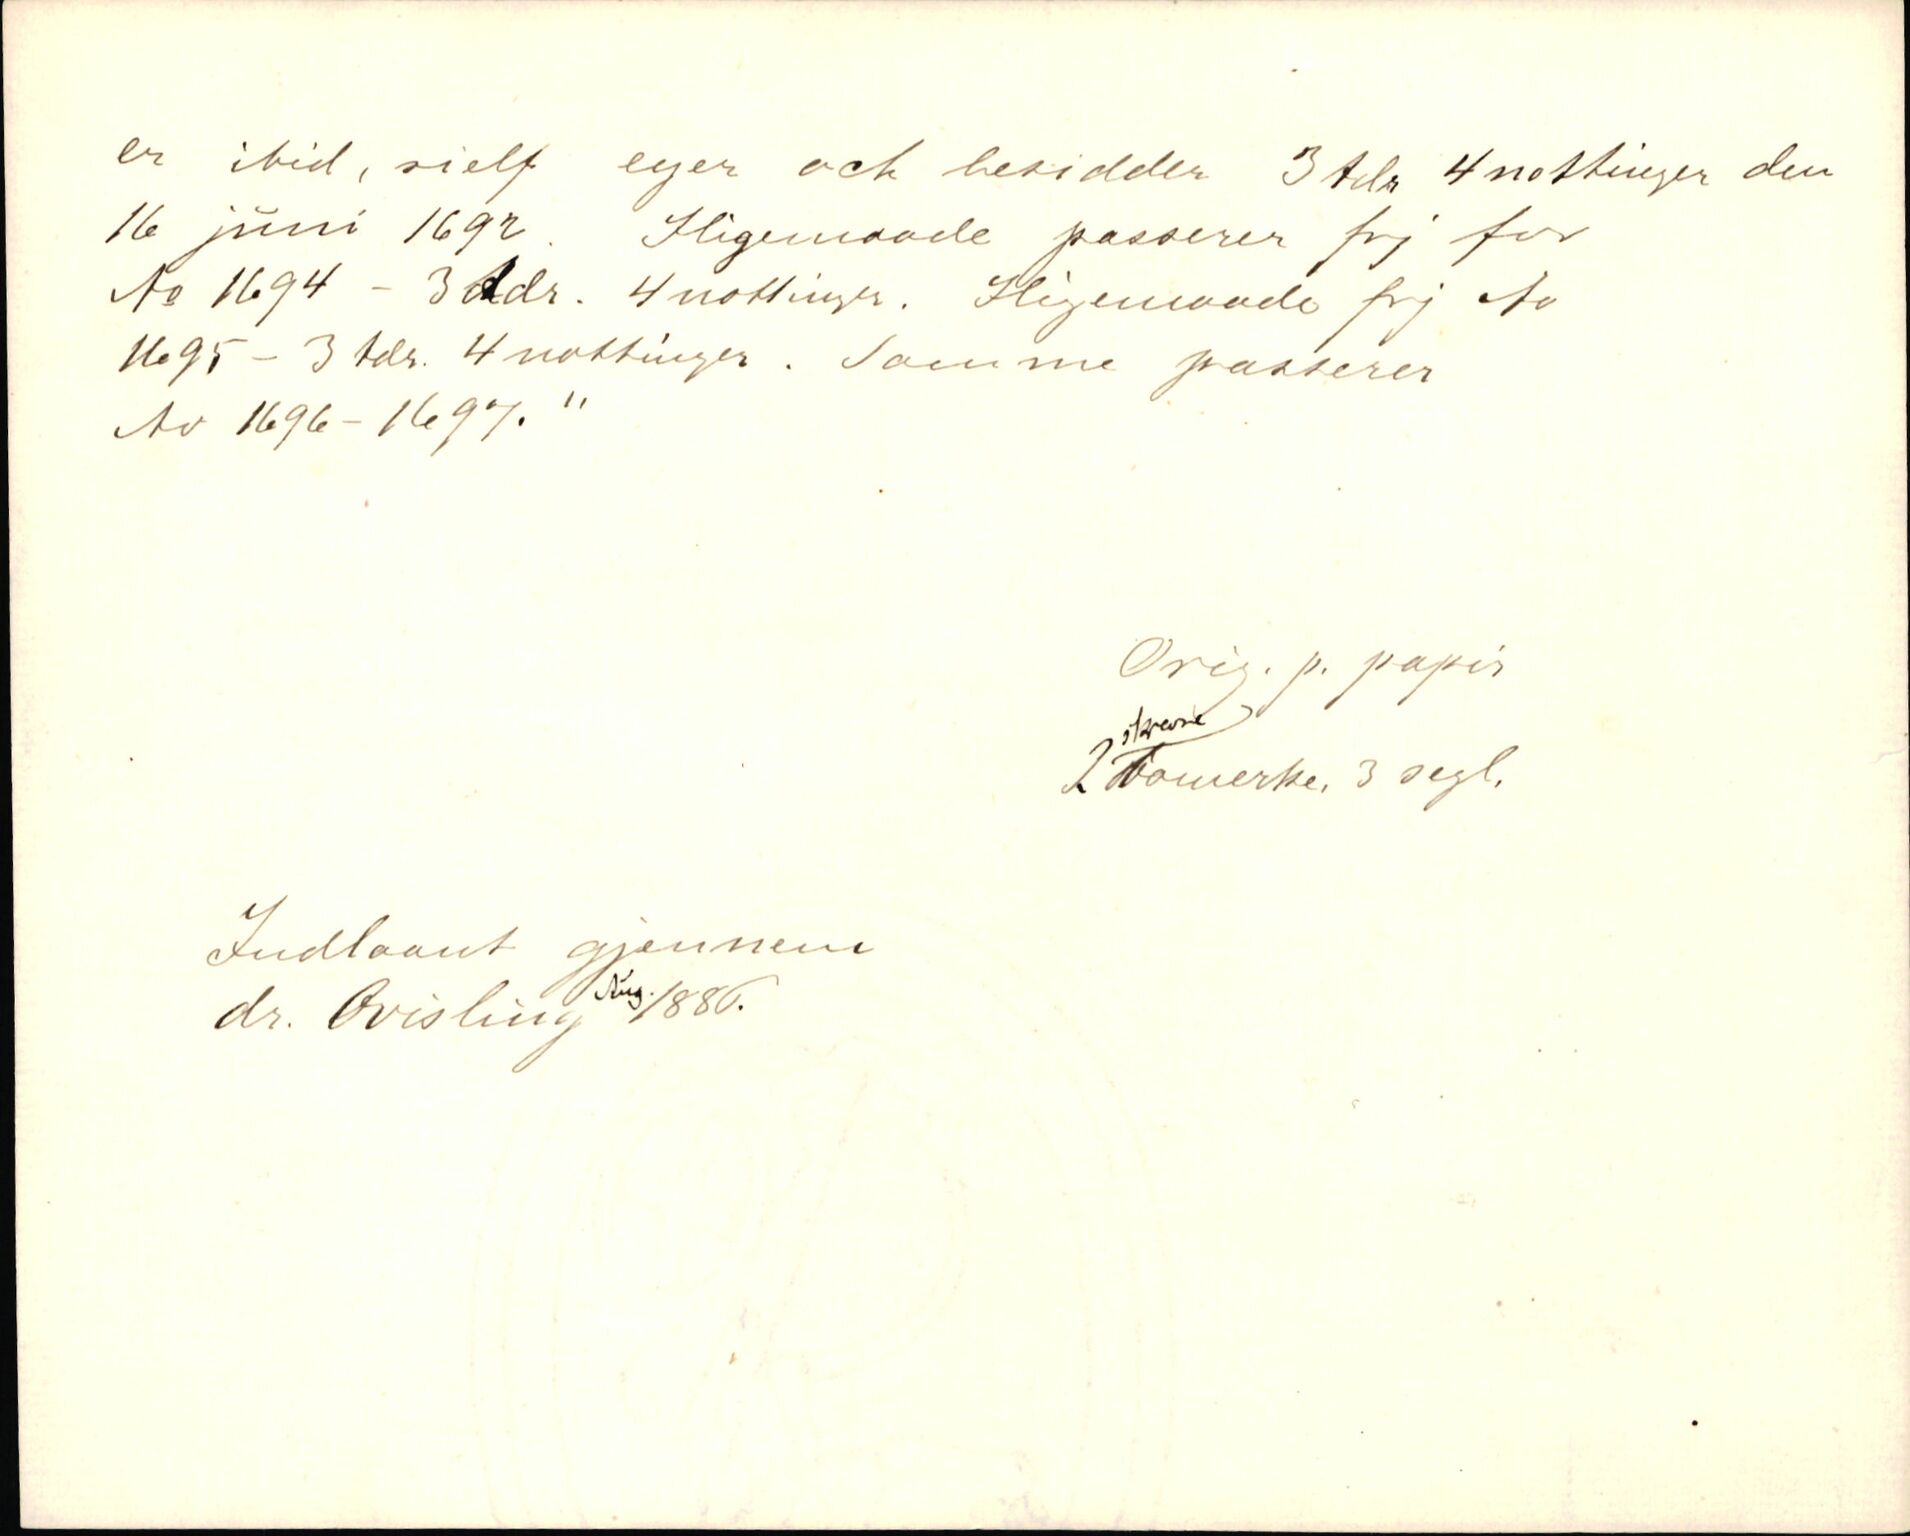 er ibid, sielf eyer och besidder 3 tdr 4 nottinger den
16 jŭni 1692. Sligemaade passerer frj for
Ao 1694 - 3 tdr. 4 nottinger. Sligemaade frj Ao
1695 - 3 tdr. 4 nottinger. Samme passerer
Ao 1696 - 1697."
Orig. p. papir
skrevne
2 bomerke, 3 segl.
Indlaant gjennem
dr. Qvisling Aug. 1886.